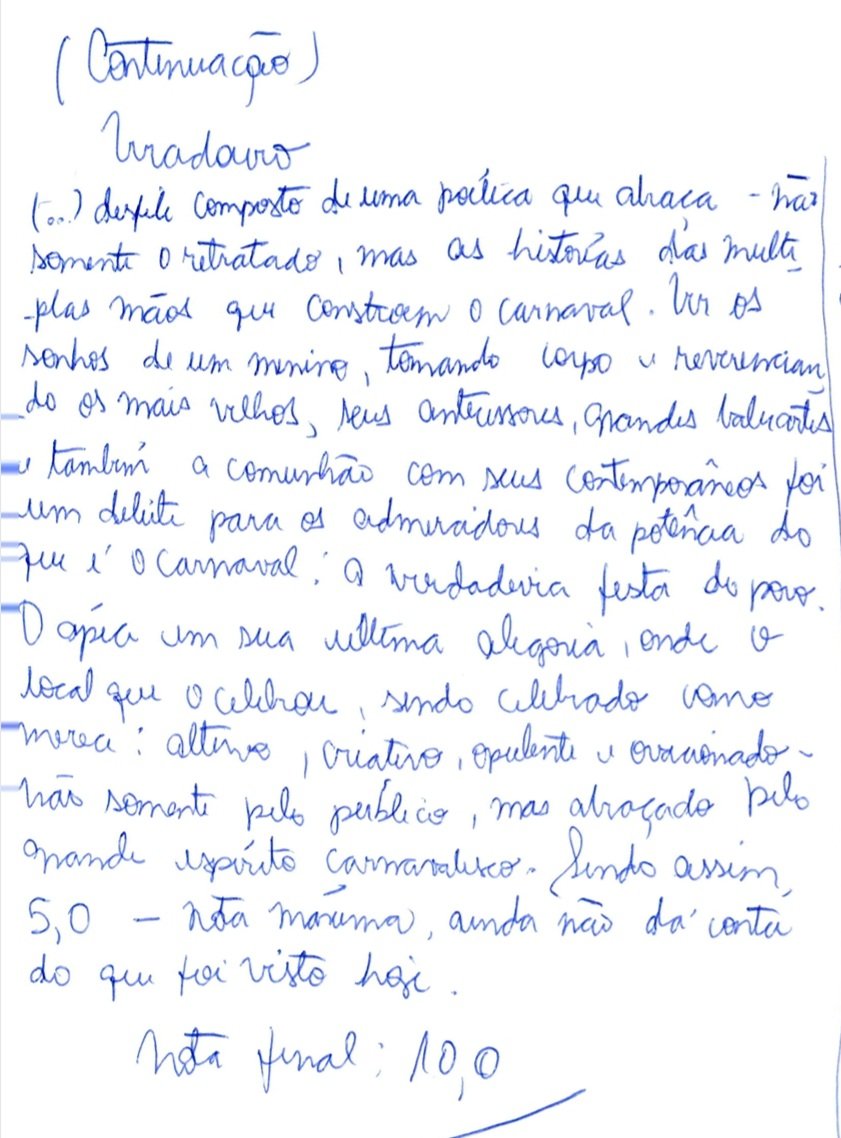 (Continuação)
Viradouro
(...) desfile composto de uma poética que abraça - não
somente o retratado, mas as histórias das múlti
-plas mãos que constroem o carnaval. Ver os
sonhos de um menino, tomando corpo e reverencian
do os mais velhos, seus antecessores, grandes baluartes
e também a comunhão com seus contemporâneos foi
um deleite para os admiradores da potência do
que é o carnaval: a verdadeira festa do povo.
O ápice em sua última alegoria, onde o
local que o celebrou, sendo celebrado como
merece: altivo, criativo, opulente e ovacionado -
não somente pelo público, mas abraçado pelo
grande espírito carnavalesco. Sendo assim,
5,0 - nota máxima, ainda não dá conta
do que foi visto hoje.
Nota final: 10,0